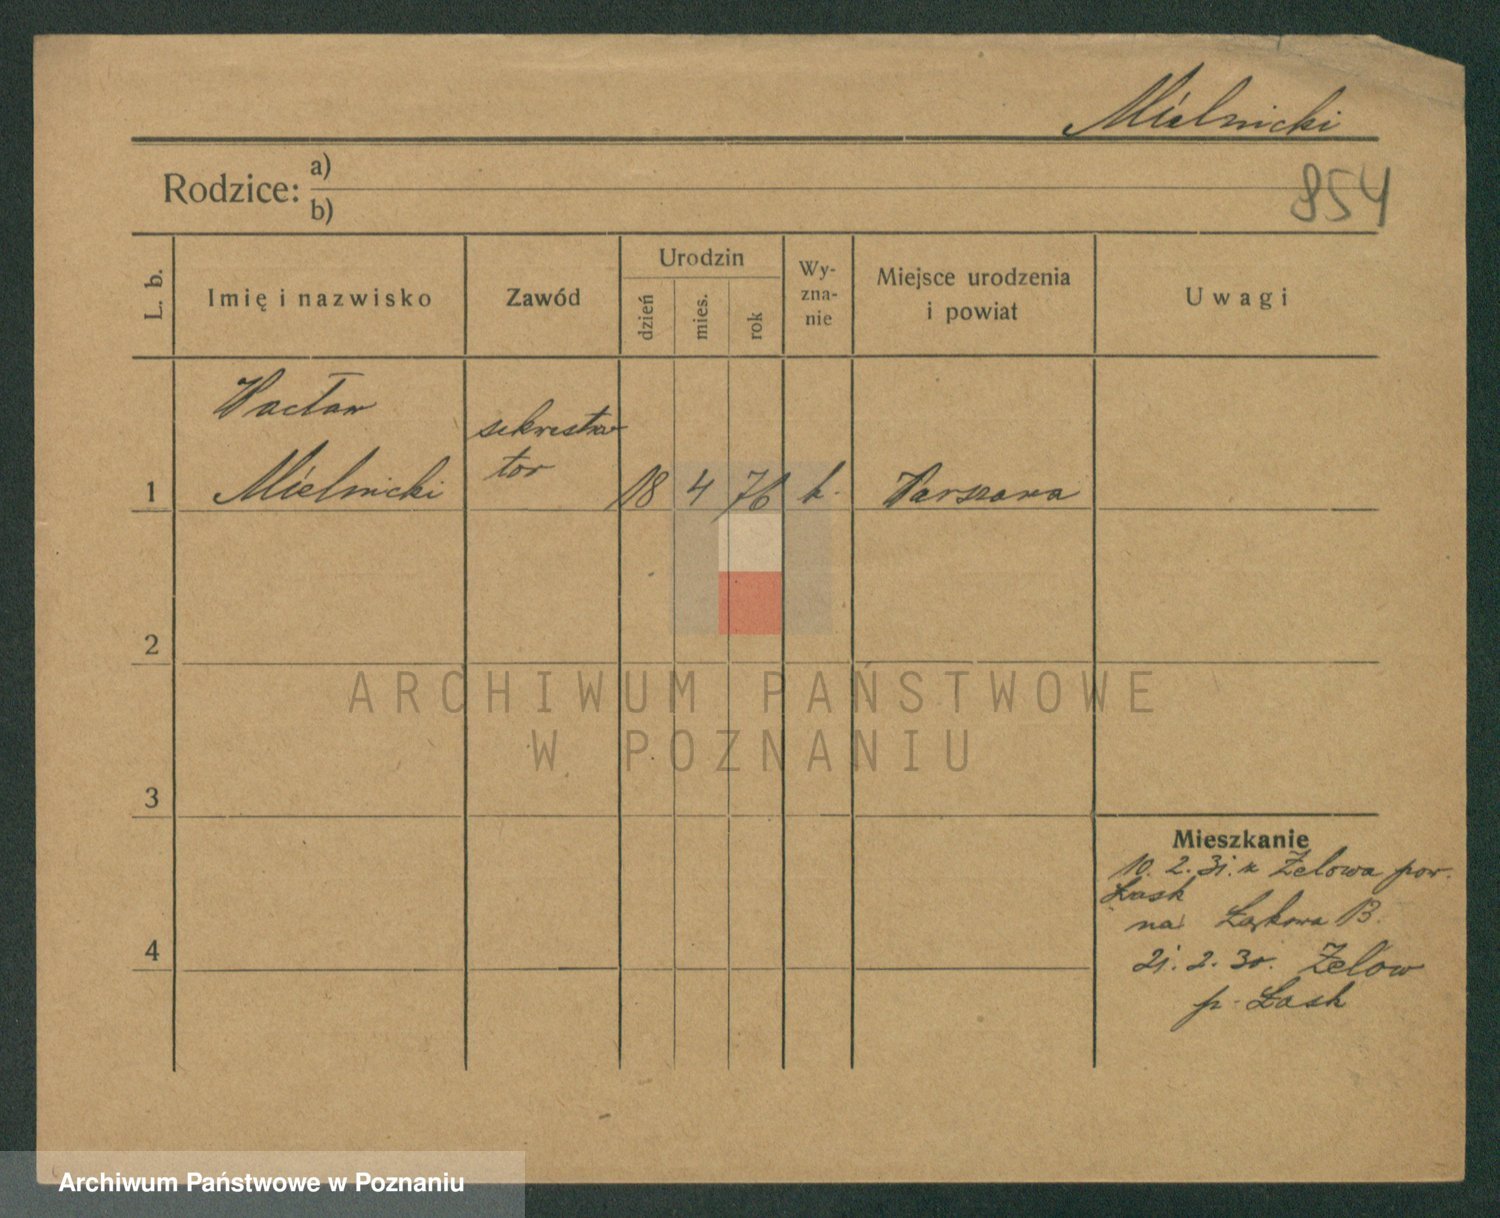 Mielnicki
Rodzice: a)
b)
854
L. b.
Imię i nazwisko
Zawód
Urodzin
dzień
mies.
rok
Wy-
zna-
nie
Miejsce urodzenia
i powiat
Uwagi
Wacław
sekwestra
tor
1 Mielnicki 18 4 76 k. Warszawa
2
ARCHIWUM PAŃSTWOWE
W POZNANIU
3
Mieszkanie
10. 2. 31. z Zelowa pow.
Łask
na Łąkowa 13.
4
21. 2. 30. Zelow
p. Łask
Archiwum Państwowe w Poznaniu